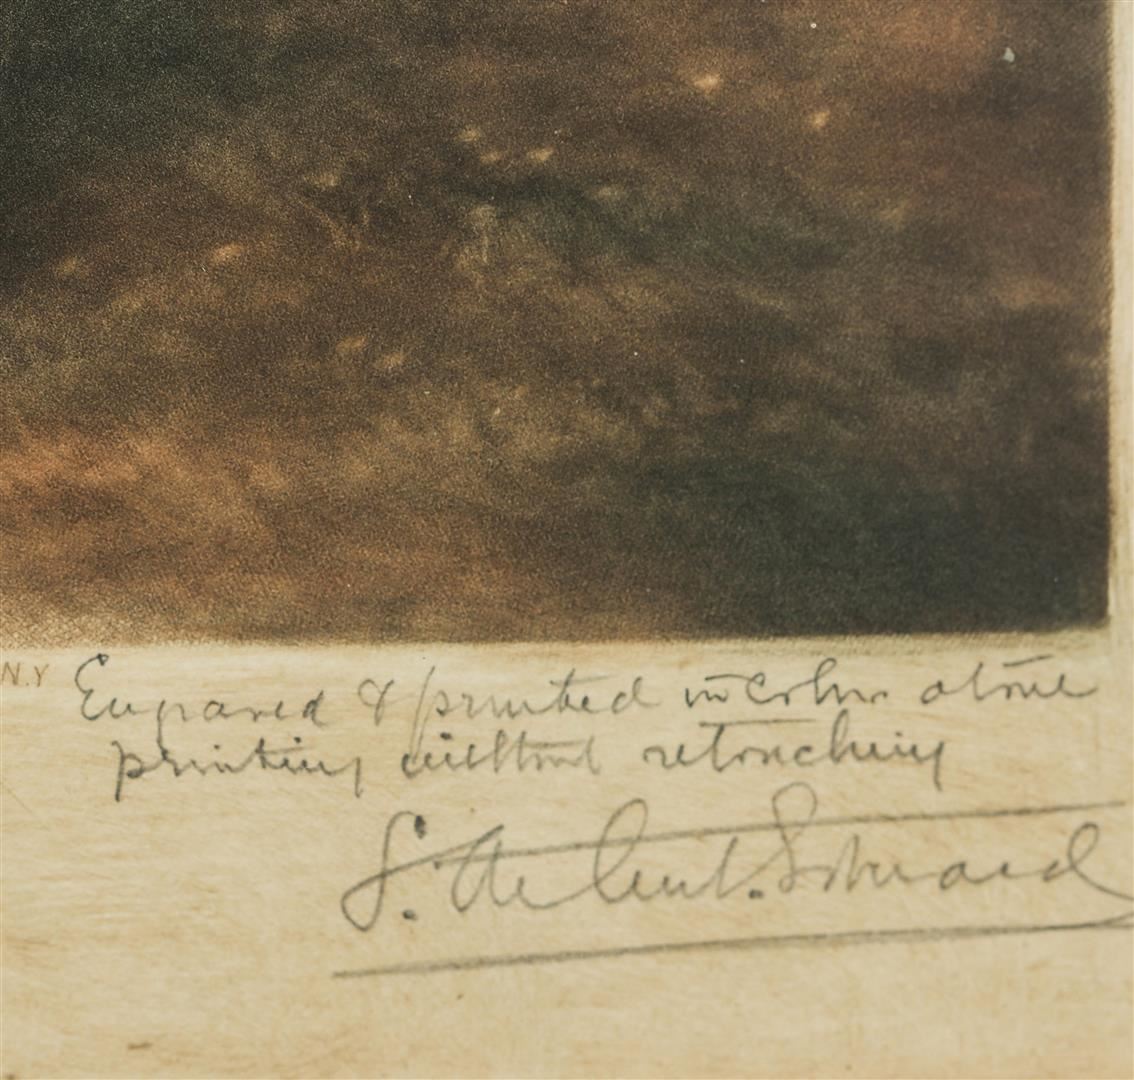 N.Y
Engraved & printed in color at one
printing without retouching
S. Arlent. Edwards